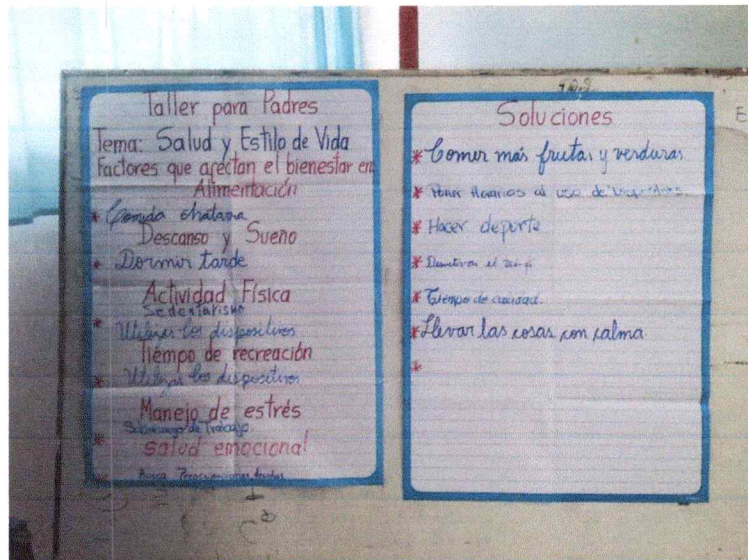 Taller para Padres
Tema: Salud y Estilo de Vida
Factores que afectan el bienestar en
Alimentación
* Comida chatarra
Descanso y Sueño
* Dormir tarde
Actividad Física
Sedentarismo
* Utilizar los dispositivos
Tiempo de recreación
* Utilizar los dispositivos
Manejo de estrés
* Sobrecarga de Trabajo.
salud emocional
Soluciones
* Comer más frutas y verduras
* Poner Horarios al uso de
* Hacer deporte
* el
* Tiempo de calidad.
* Llevar las cosas con calma
*